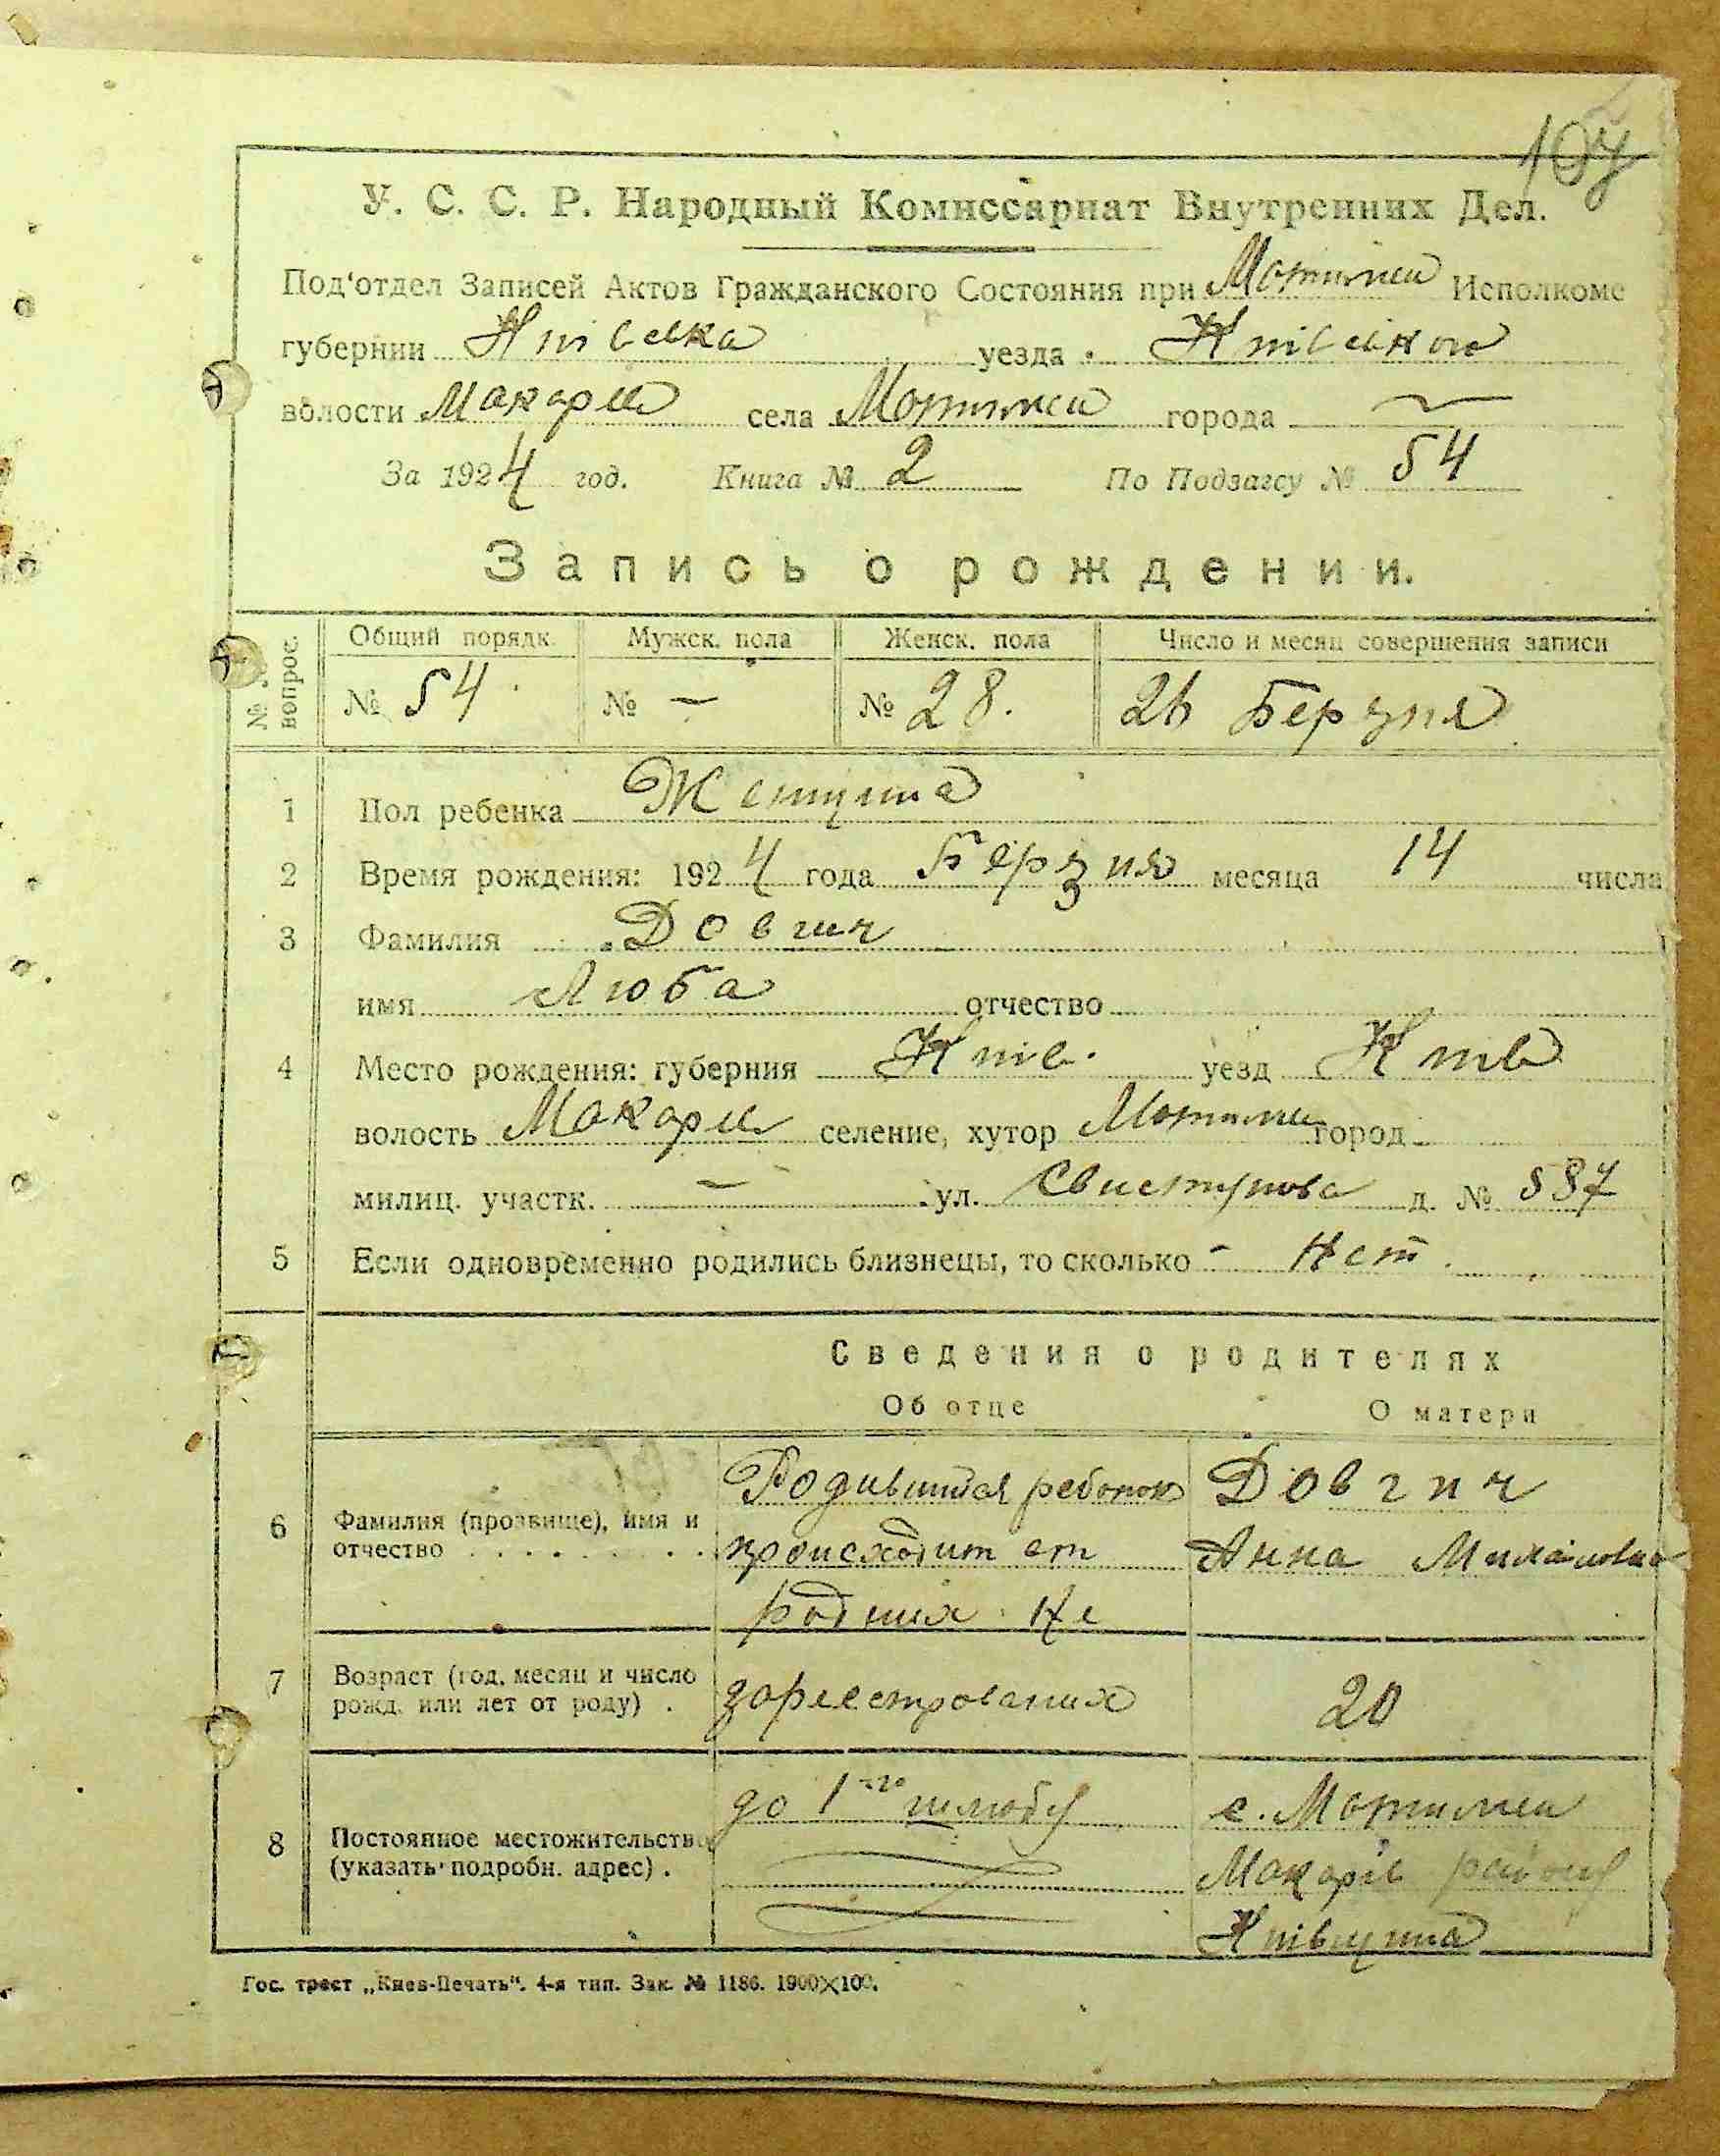 107
У. С. С. Р. Народный Комиссариат Внутренних Дел.
Под'отдел Записей Актов Гражданского Состояния при Мотижен Исполкоме
губернии Київська уезда Київсько
волости Макарів села Мотижен города —
За 1924 год. Книга № 2 По Подзагсу № 54
Запись о рождении.
№ вопрос. Общий порядк. Мужск. пола Женск. пола Число и месяц совершения записи
№ 54 № — № 28. 26 Березня
1 Пол ребенка Женщина
2 Время рождения: 1924 года Березня месяца 14 числа
3 Фамилия Довгич
имя Люба отчество
4 Место рождения: губерния Київ. уезд Київ
волость Макарів селение, хутор Мотижен город
милиц. участк. — ул. Свистунова д. № 587
5 Если одновременно родились близнецы, то сколько - Нет.
Сведения о родителях
Об отце О матери
6 Фамилия (прозвище), имя и отчество Родившийся ребонок Довгич
происходит от Анна
родших не
7 Возраст (год, месяц и число рожд. или лет от роду) . зареестрованих 20
8 Постоянное местожительство (указать подробн. адрес) . до 1го шлюбу с. Мотижен
Макарів району
Київщина
Гос. трест „Киев-Печать". 4-я тип. Зак. № 1186. 1900×100.